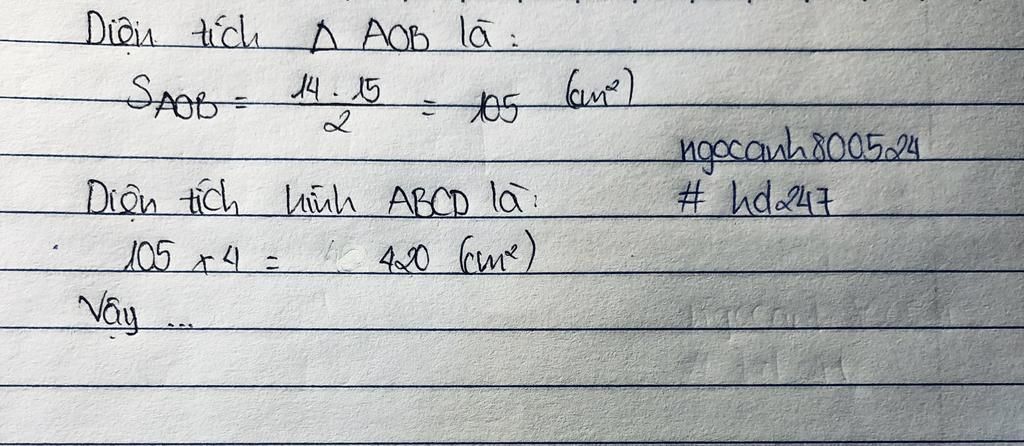 Diện tích Δ AOB là :
S AOB = 14 . 15 / 2 = 105 (cm²)
ngocanh800524
# hd247
Diện tích hình ABCD là :
105 x 4 = 420 (cm²)
Vậy ...